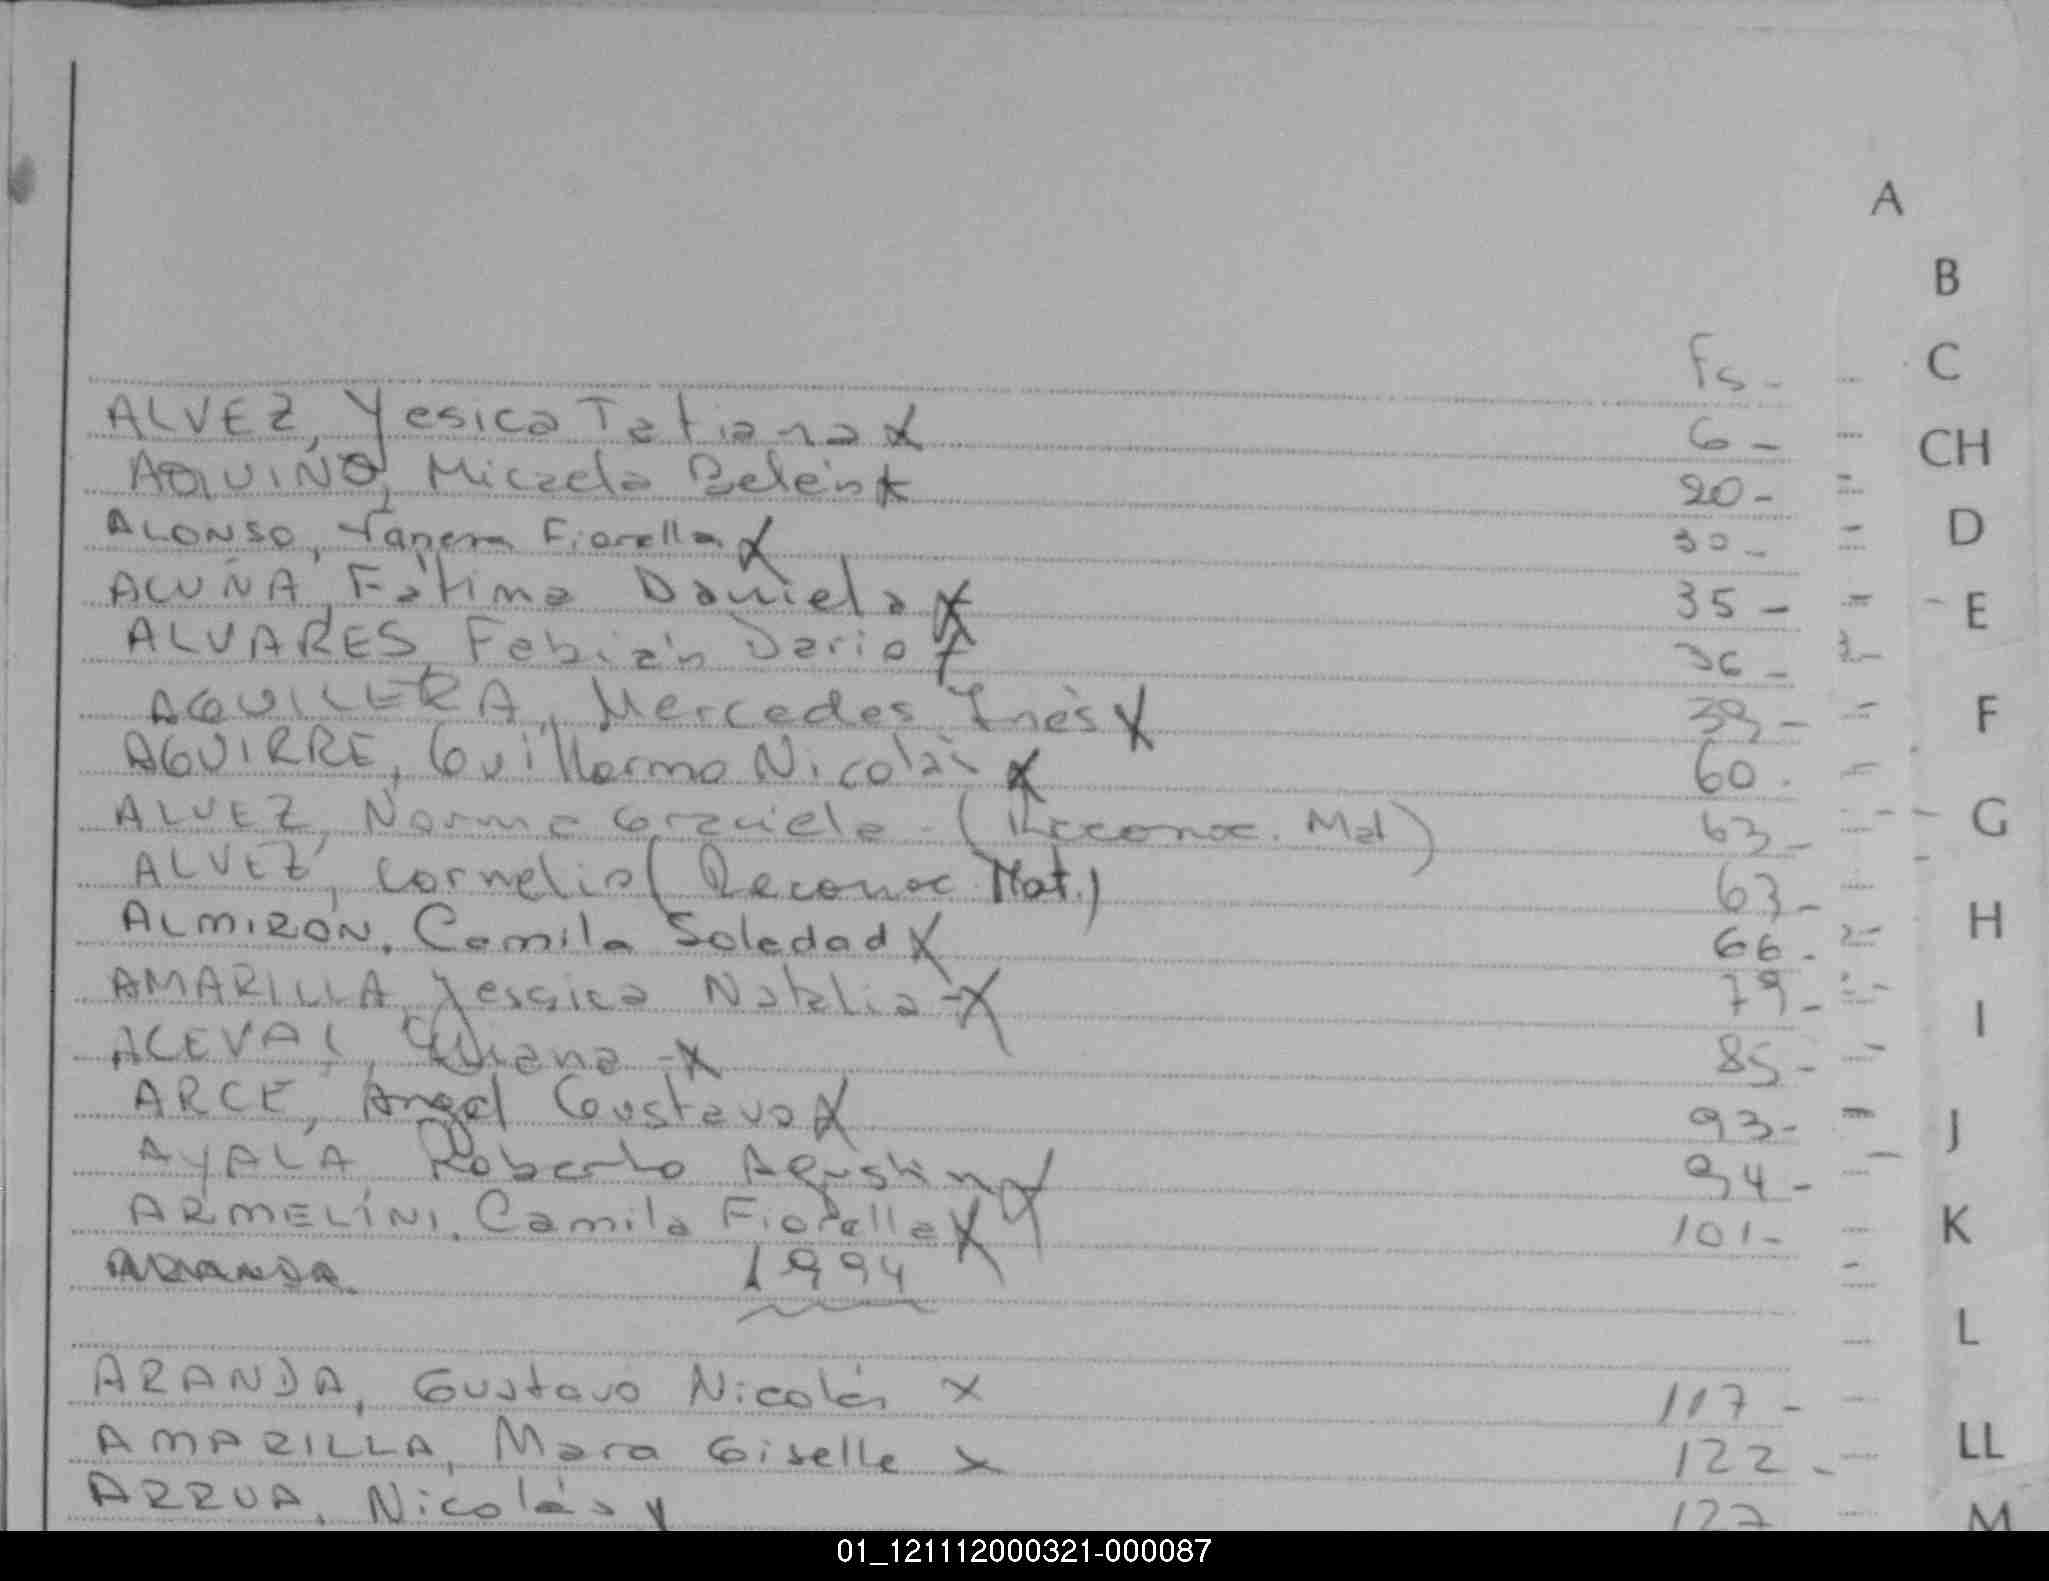 A
B
Fs - C
ALVEZ, Yesica Tatiana x 6 - CH
AQUINO, Micaela Belén x 20 -
ALONSO, Yanena Fiorella x 30 - D
ACUÑA, Fátima Daniela x 35 - E
ALVARES, Fabián Dario x 36 -
AGUILERA, Mercedes Inés x 39 - F
AGUIRRE, Guillermo Nicolás x 60 -
ALVEZ, Norma Graciela - (Reconoc. Mat) 63 - G
ALVEZ, Cornelio (Reconoc Mat.) 63 -
ALMIRÓN, Camila Soledad x 66 - H
AMARILLA, Jessica Natalia - x 79 - I
ACEVAL, - x 85 -
ARCE, Angel Gustavo x 93 - J
AYALA, Roberto Agustin x 94 -
ARMELÍNI, Camila Fiorella x 101 - K
ARANDA 1994
L
ARANDA, Gustavo Nicolás x 117 -
AMARILLA, Mara Giselle x 122 - LL
ARRUA, Nicolás x 127 M
01_121112000321-000087